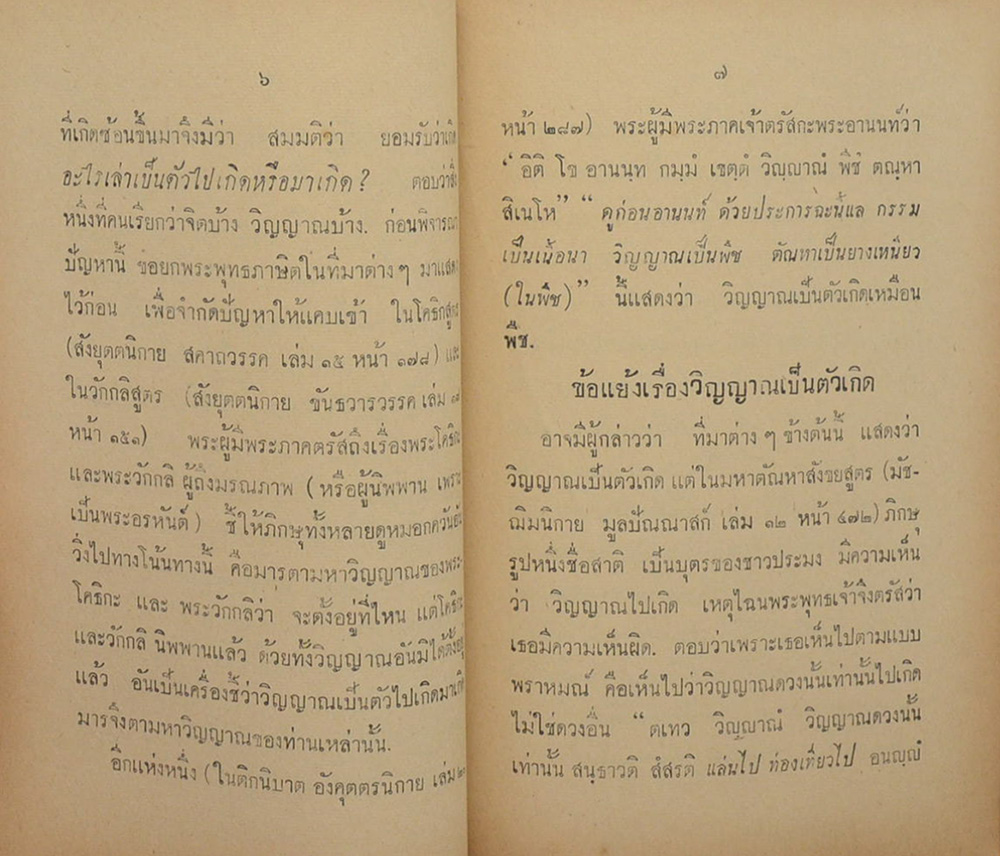 ๖
ที่เกิดซ้อนขึ้นมาจึงมีว่า สมมติว่า ยอมรับว่าเกิด
อะไรเล่าเป็นตัวไปเกิดหรือมาเกิด? ตอบว่าสิ่ง
หนึ่งที่คนเรียกว่าจิตบ้าง วิญญาณบ้าง. ก่อนพิจารณา
ปัญหานี้ ขอยกพระพุทธภาษิตในที่มาต่าง ๆ มาแสดง
ไว้ก่อน เพื่อจำกัดปัญหาให้แคบเข้า ในโคธิกสูตร
(สังยุตตนิกาย สคาถวรรค เล่ม ๑๕ หน้า ๑๗๘) และ
ในวักกลิสูตร (สังยุตตนิกาย ขันธวารวรรค เล่ม
หน้า ๑๕๑) พระผู้มีพระภาคตรัสถึงเรื่องพระโคธิกะ
และพระวักกลิ ผู้ถึงมรณภาพ (หรือผู้นิพพาน เพราะ
เป็นพระอรหันต์) ชี้ให้ภิกษุทั้งหลายดูหมอกควันอัน
วิ่งไปทางโน้นทางนี้ คือมารตามหาวิญญาณของพระ-
โคธิกะ และ พระวักกลิว่า จะตั้งอยู่ที่ไหน แต่โคธิกะ
และวักกลิ นิพพานแล้ว ด้วยทั้งวิญญาณอันมิได้ตั้งอยู่
แล้ว อันเป็นเครื่องชี้ว่าวิญญาณเป็นตัวไปเกิดมาเกิด
มารจึงตามหาวิญญาณของท่านเหล่านั้น.
อีกแห่งหนึ่ง (ในติกนิบาต อังคุตตรนิกาย เล่ม ๒๐
๗
หน้า ๒๘๗) พระผู้มีพระภาคเจ้าตรัสกะพระอานนท์ว่า
“ อิติ โข อานนฺท กมฺมํ เขตฺตํ วิญฺญาณํ พีชํ ตณฺหา
สิเนโห” “ ดูก่อนอานนท์ ด้วยประการฉะนี้แล กรรม
เป็นเนื้อนา วิญญาณเป็นพืช ตัณหาเป็นยางเหนียว
(ในพืช)” นี้แสดงว่า วิญญาณเป็นตัวเกิดเหมือน
พืช.
ข้อแย้งเรื่องวิญญาณเป็นตัวเกิด
อาจมีผู้กล่าวว่า ที่มาต่าง ๆ ข้างต้นนี้ แสดงว่า
วิญญาณเป็นตัวเกิด แต่ในมหาตัณหาสังขยสูตร (มัช-
ฌิมนิกาย มูลปัณณาสก์ เล่ม ๑๒ หน้า ๔๗๒) ภิกษุ
รูปหนึ่งชื่อสาติ เป็นบุตรของชาวประมง มีความเห็น
ว่า วิญญาณไปเกิด เหตุไฉนพระพุทธเจ้าจึงตรัสว่า
เธอมีความเห็นผิด. ตอบว่าเพราะเธอเห็นไปตามแบบ
พราหมณ์ คือเห็นไปว่าวิญญาณดวงนั้นเท่านั้นไปเกิด
ไม่ใช่ดวงอื่น “ ตเทว วิญฺญาณํ วิญญาณดวงนั้น
เท่านั้น สนฺธาวติ สํสรติ แล่นไป ท่องเที่ยวไป อนญฺญํ